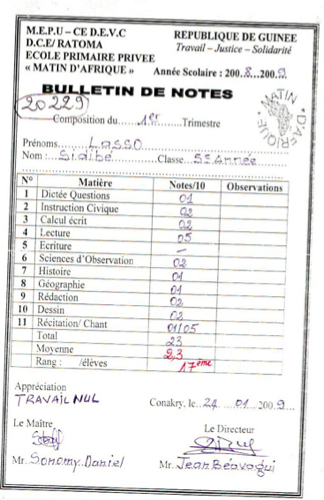 M.E.P.U - CE D.E.V.C
D.C.E/ RATOMA
ECOLE PRIMAIRE PRIVEE
« MATIN D'AFRIQUE »
REPUBLIQUE DE GUINEE
Travail – Justice – Solidarité
Année Scolaire : 200.8..200.9
BULLETIN DE NOTES
20229
MATIN D'AFRIQUE
Composition du.....1er.......Trimestre
Prénoms.......LASSO
Nom :....Sidibe......Classe..5e Année
N° Matière Notes/10 Observations
1 Dictée Questions 01
2 Instruction Civique 02
3 Calcul écrit 02
4 Lecture 05
5 Ecriture —
6 Sciences d'Observation 02
7 Histoire 01
8 Géographie 01
9 Rédaction 02
10 Dessin 02
11 Récitation/ Chant 01/05
Total 23
Moyenne 2,3
Rang : /élèves 17ème
Appréciation
TRAVAIL NUL
Conakry, le..24...01...200.9
Le Maître
Le Directeur
Mr. Sonomy Daniel
Mr. Jean Beavogui